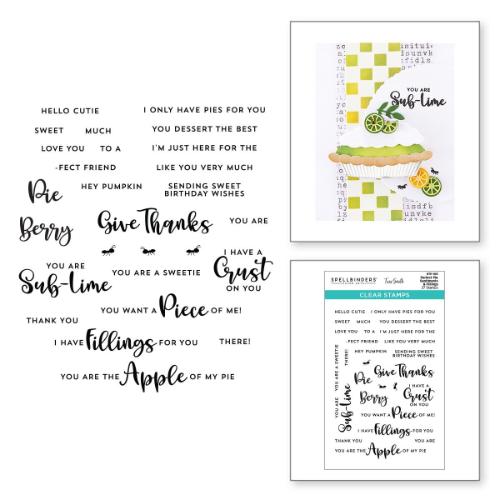 HELLO CUTIE
I ONLY HAVE PIES FOR YOU
SWEET MUCH
YOU DESSERT THE BEST
LOVE YOU TO A
I'M JUST HERE FOR THE
-FECT FRIEND
LIKE YOU VERY MUCH
Pie
HEY PUMPKIN
SENDING SWEET
BIRTHDAY WISHES
Berry
Give Thanks
YOU ARE
YOU ARE
Sub-lime
YOU ARE A SWEETIE
I HAVE A
Crust
ON YOU
YOU WANT A Piece OF ME!
THANK YOU
I HAVE Fillings FOR YOU
THERE!
YOU ARE THE Apple OF MY PIE
YOU ARE
Sub-lime
SPELLBINDERS
CLEAR STAMPS
HELLO CUTIE I ONLY HAVE PIES FOR YOU
SWEET MUCH YOU DESSERT THE BEST
LOVE YOU TO A I'M JUST HERE FOR THE
-FECT FRIEND LIKE YOU VERY MUCH
HEY PUMPKIN
SENDING SWEET
BIRTHDAY WISHES
YOU ARE A SWEETIE
THERE!
Pie
Give Thanks
YOU ARE
Sub-lime
Berry
I HAVE A
Crust
ON YOU
YOU WANT A Piece OF ME!
I HAVE Fillings FOR YOU
THANK YOU
YOU ARE
YOU ARE THE Apple OF MY PIE